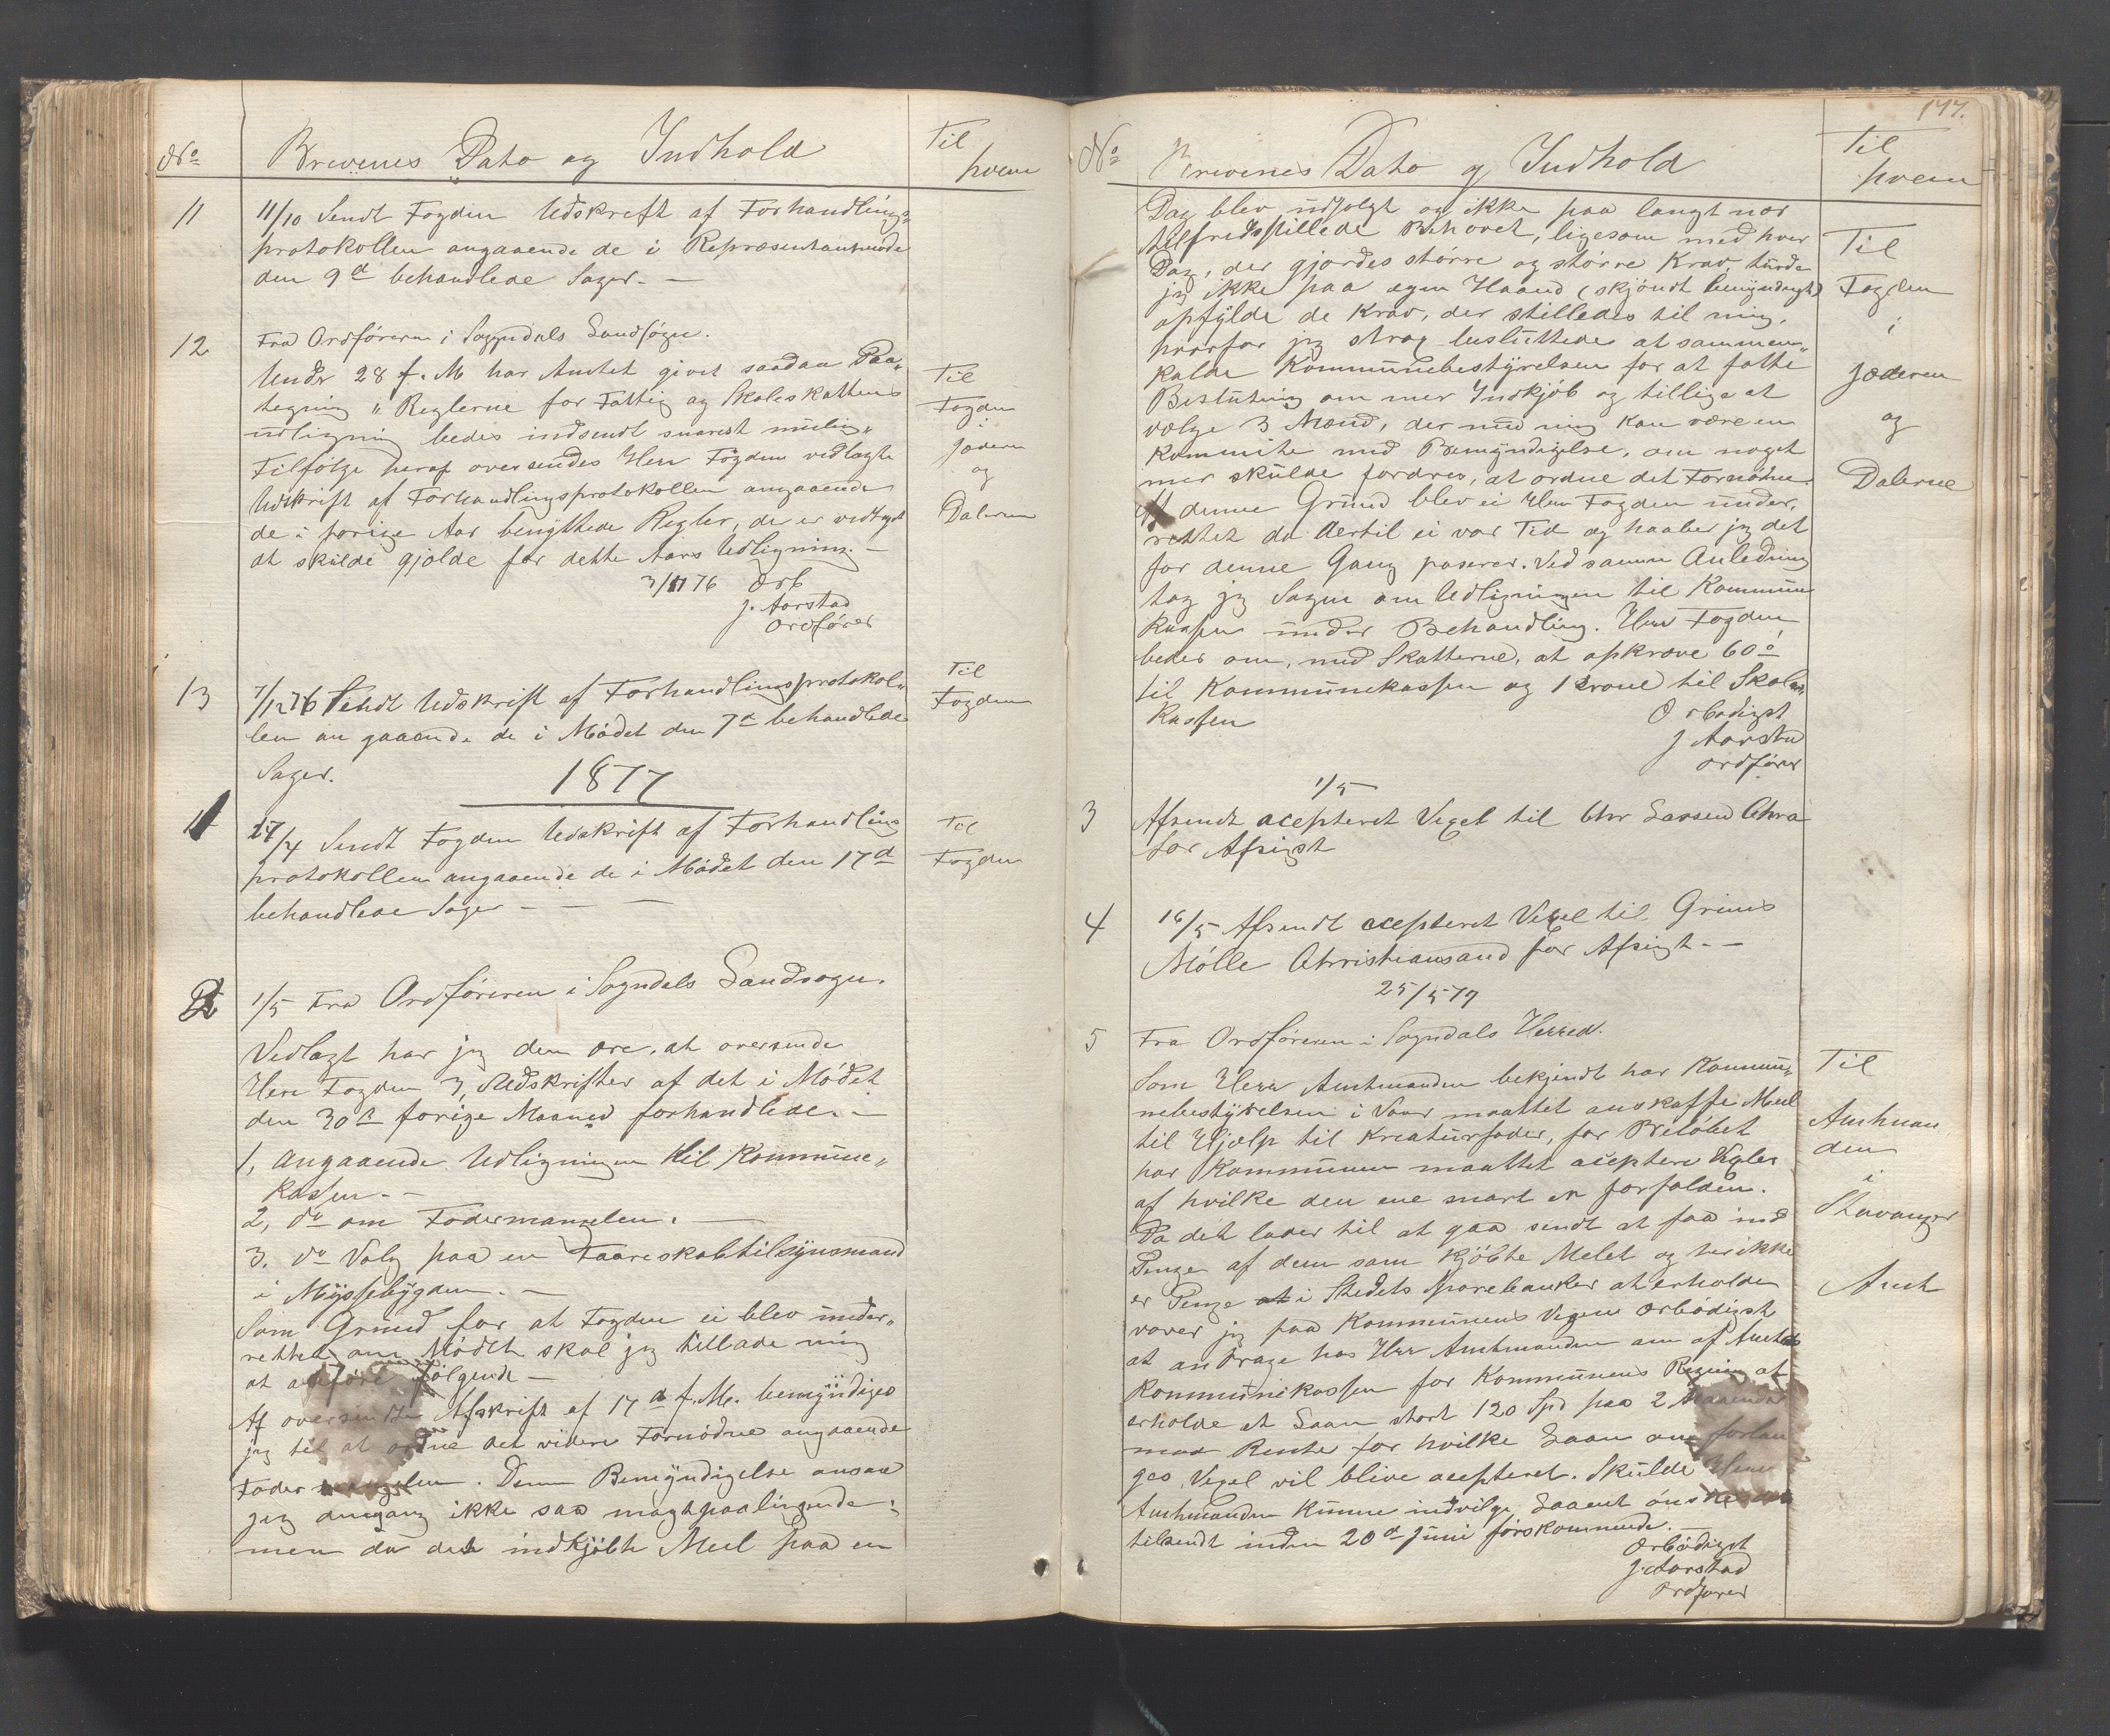 No Brevenes Dato og Indhold Til hvem
11 11/10 Sendt Fogden Udskrift af Forhandlings
protokollen angaaende de i Repræsentantmøde
den 9d behandlede Sager. —
12 Fra Ordføreren i Sogndals Landsogn.
Under 28 f. M har Amtet givet saadan Paa„
tegning „Reglerne for Fattig og Skoleskattens
udligning bedes indsendt snarest mulig„
Tilfølge heraf oversendes Herr Fogden vedlagte
Udskrift af Forhandlingsprotokollen angaaende
de i forige Aar benyttede Regler, de er vedtaget
at skulde gjælde for dette Aars Udligning. —
3/11 76 Ørb
J. Aarstad
Ordfører
Til
Fogden
i
Jæderen
og
Dalerne
13 7/12 76 Sendt Udskrift af Forhandlingsprotokol„
len angaaende de i Mødet den 7d behandlede
Sager.
Til
Fogden
1877
1 27/4 Sendt Fogden Udskrift af Forhandlings
protokollen angaaende de i Mødet den 17d
behandlede Sager — — —
Til
Fogden
2 1/5 Fra Ordføreren i Sogndals Landsogn.
Vedlagt har jeg den ære, at oversende
Herr Fogden 3, Udskrifter af det i Mødet
den 30d forige Maaned forhandlede. —
1, angaaende Udligningen til Kommune„
kassen. —
2, do om Fodermangelen. —
3. do Valg paa en Faareskabtilsynsmand
i Mysse­bygden. —
Som Grund for at Fogden ei blev under„
rettet om Mødet skal jeg tillade mig
at anføre følgende —
Af oversendte Afskrift af 17d f. M. bemyndiges
jeg til at ordne det videre Fornødne angaaende
Fodermangelen. Denne Bemyndigelse ansaa
jeg dengang ikke saa magtpaaliggende;
men da det indkjøbte Meel paa en
177.
No Brevenes Dato og Indhold Til hvem
Dag blev udsolgt og ikke paa langt nær
tilfredsstillede Behovet, ligesom med hver
Dag, der gjordes større og større Krav, turde
jeg ikke paa egen Haand (skjøndt bemyndiget)
opfylde de Krav, der stilledes til mig,
hvorfor jeg strax besluttede at sammen„
kalde Kommunebestyrelsen for at fatte
Beslutning om mer Indkjøb og tillige at
vælge 3 Mænd, der med mig kan være en
Kommite med Bemyndigelse, om noget
mer skulde fordres, at ordne det Fornødne.
Af denne Grund blev ei Herr Fogden under„
rettet da dertil ei var Tid og haaber jeg det
for denne Gang paserer. Ved samme Anledning
tog jeg Sagen om Udligningen til Kommune
kassen under Behandling. Herr Fogden
bedes om, med Skatterne, at opkræve 60 ø
til Kommunekassen og 1 Krone til Skole
kassen
Ørbødigst
J Aarstad
Ordfører
Til
Fogden
i
Jæderen
og
Dalerne
1/5
3 Afsendt acepteret Vexel til Chr Larsen Chra
for Afsigt
4 16/5 Afsendt acepteret Vexel til Grims
Mølle Christiansand for Afsigt. —
25/5 77
5 Fra Ordføreren i Sogndals Herred.
Som Herr Amtmanden bekjendt har Kommu„
nebestyrelsen i Vaar maattet anskaffe Meel
til Hjælp til Kreaturfoder, for Beløbet
har Kommunen maattet aceptere Vexler
af hvilke den ene snart er forfalden.
Da det lader til at gaa sendt at faa ind
Penge af dem som kjøbte Melet og her ikke
er Penge i Stedets Sparebanker at erholde
vover jeg paa Kommunens Vegne ørbødigst
at andrage hos Herr Amtmanden om af Amts
kommunekassen for Kommunens Regning at
erholde et Laan stort 120 Spd paa 2 Maaneder
mod Renter for hvilke Laan om forlan
ges, Vexel vil blive acepteret. Skulde Herr
Amtmanden kunne indvilge Laanet ønskes
tilsendt inden 20d Juni førskommende. —
Ørbødigst
J. Aarstad
Ordfører
Til
Amtman
den
i
Stavanger
Amt